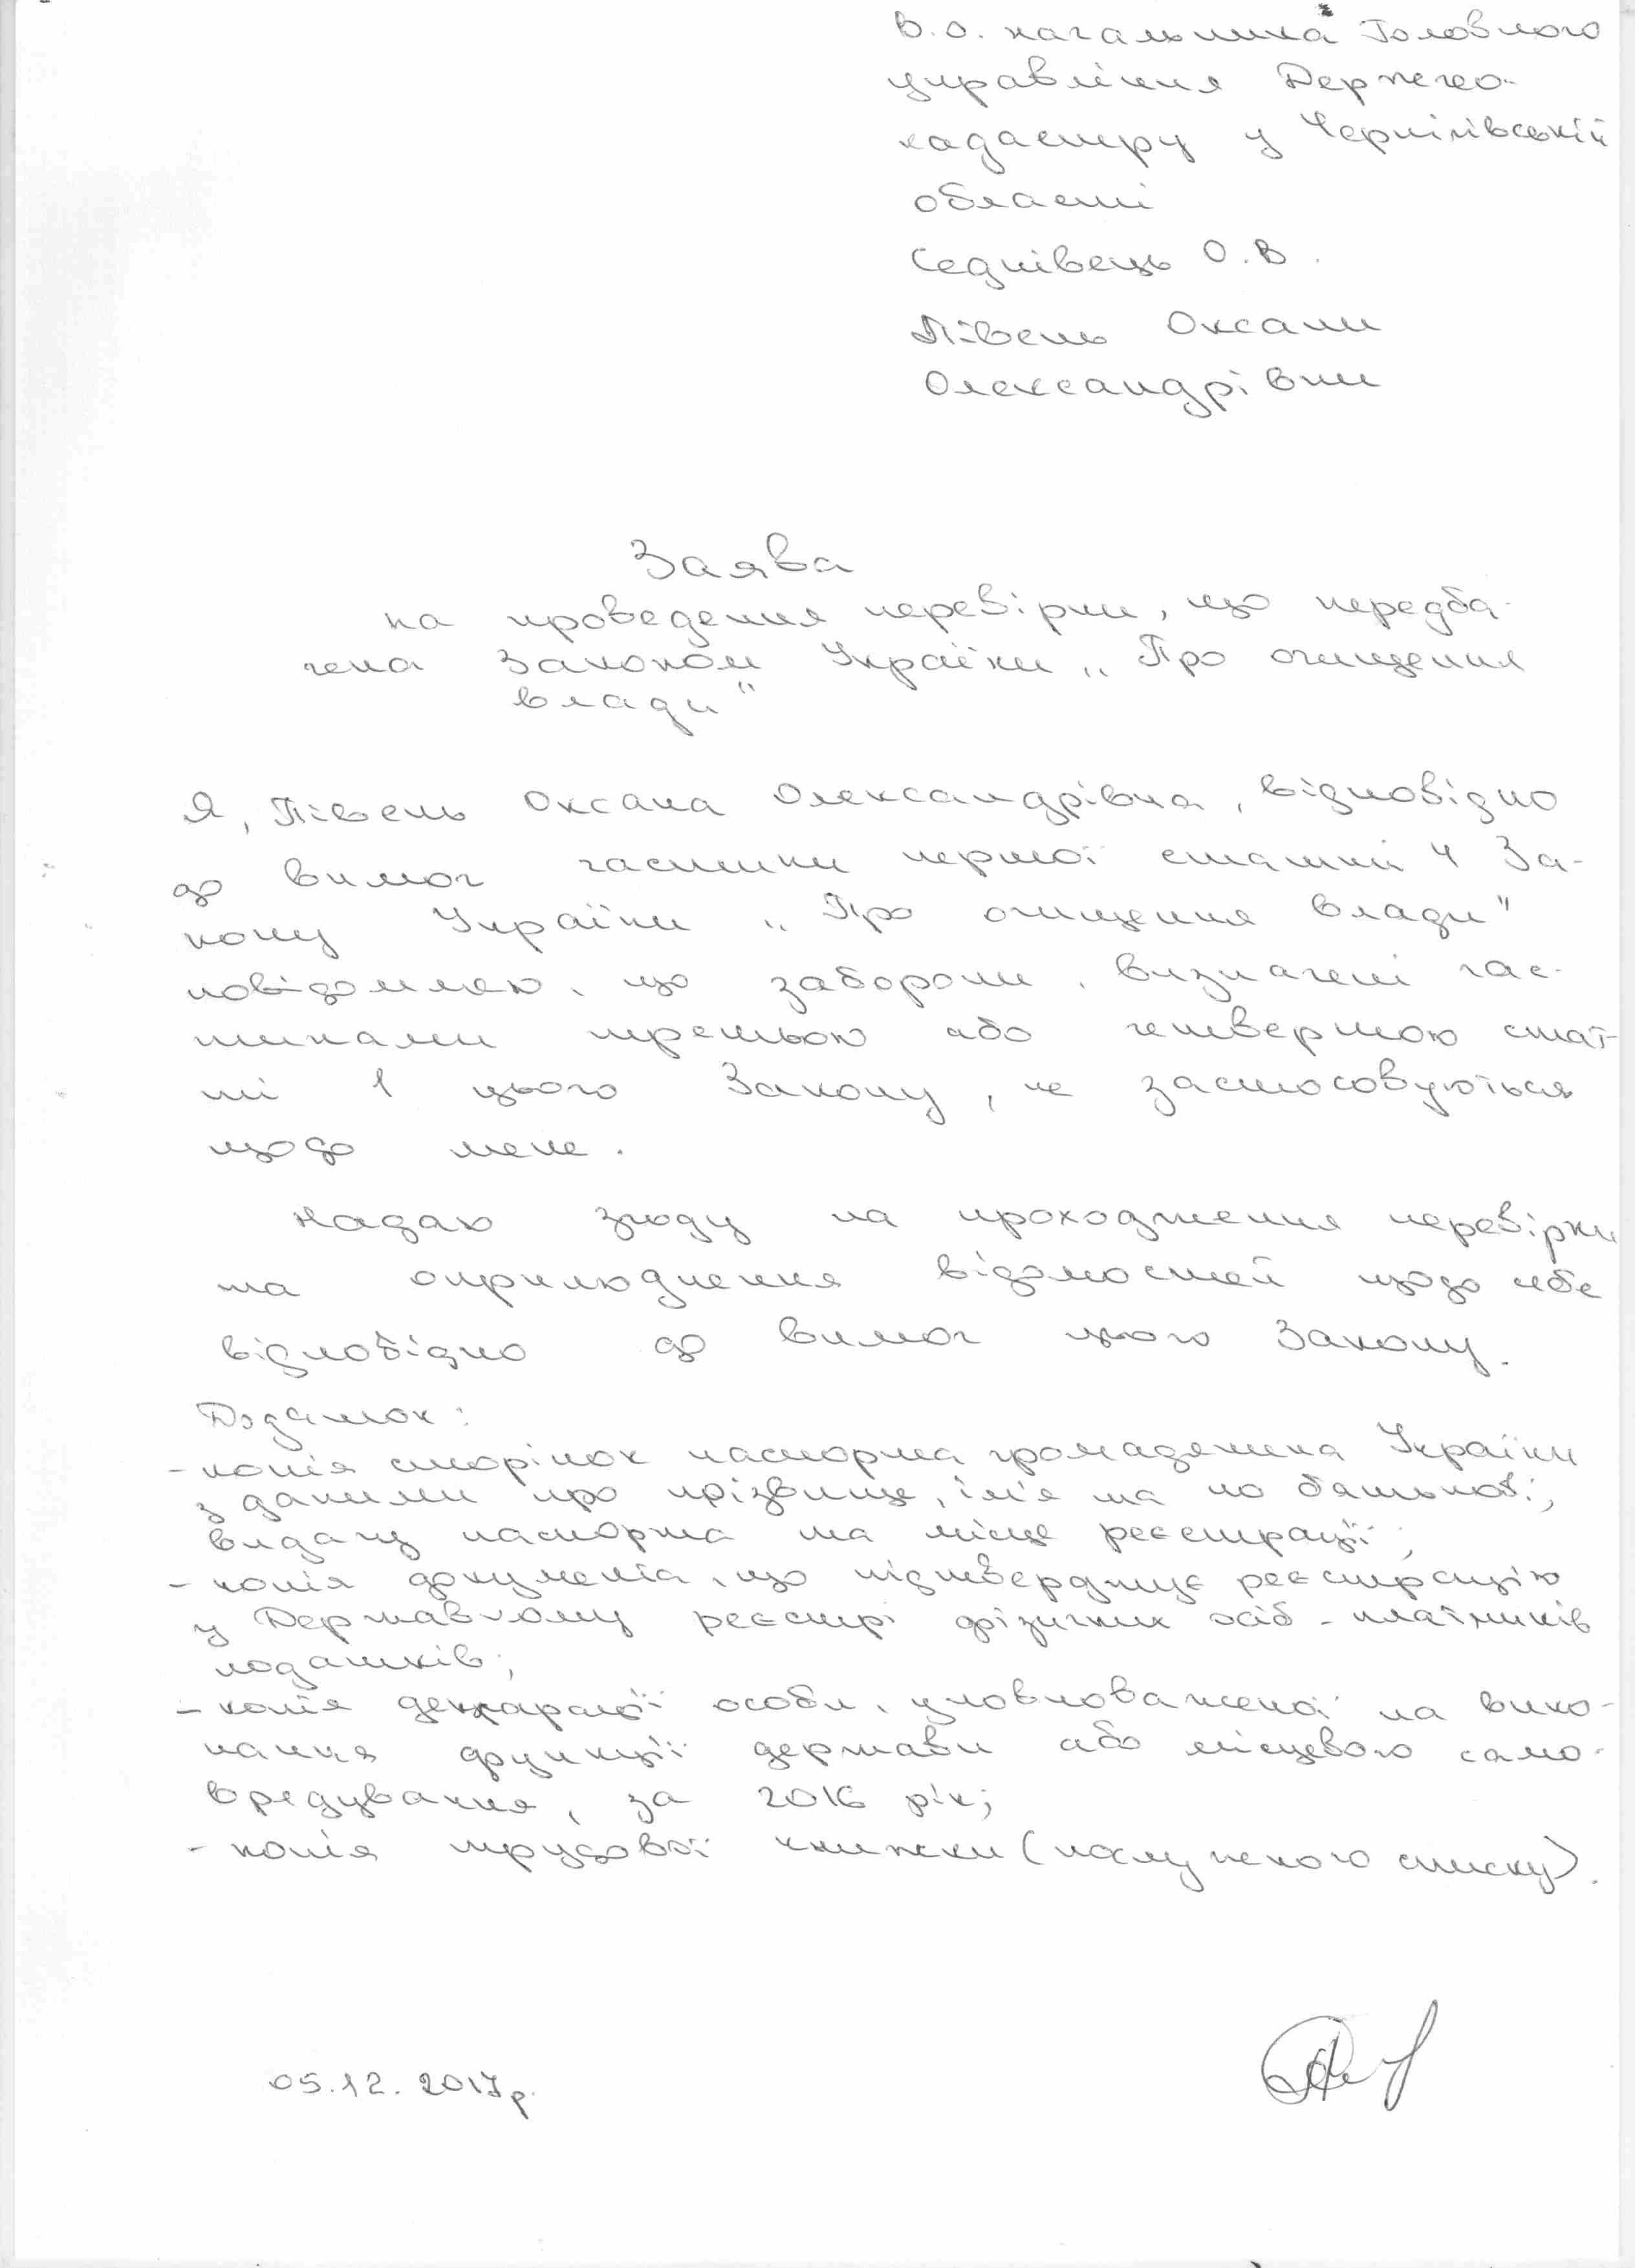 В.о. начальника Головного
управління Держгео-
кадастру у Чернігівській
області
Седнівець О.В.
Півень Оксани
Олександрівни
Заява
на проведення перевірки, що передба-
чена Законом України „Про очищення
влади"
Я, Півень Оксана Олександрівна, відповідно
до вимог частини першої статті 4 За-
кону України „Про очищення влади"
повідомляю, що заборони, визначені час-
тинами третьою або четвертою стат-
ті 1 цього Закону, не застосовуються
щодо мене.
Надаю згоду на проходження перевірки
та оприлюднення відомостей щодо себе
відповідно до вимог цього Закону.
Додаток:
- копія сторінок паспорта громадянина України
з даними про прізвище, ім'я та по батькові,
видачу паспорта та місце реєстрації;
- копія документа, що підтверджує реєстрацію
у Державному реєстрі фізичних осіб - платників
податків;
- копія декларації особи, уповноваженої на вико-
нання функції держави або місцевого само-
врядування, за 2016 рік;
- копія трудової книжки (послужного списку).
05.12.2017р.